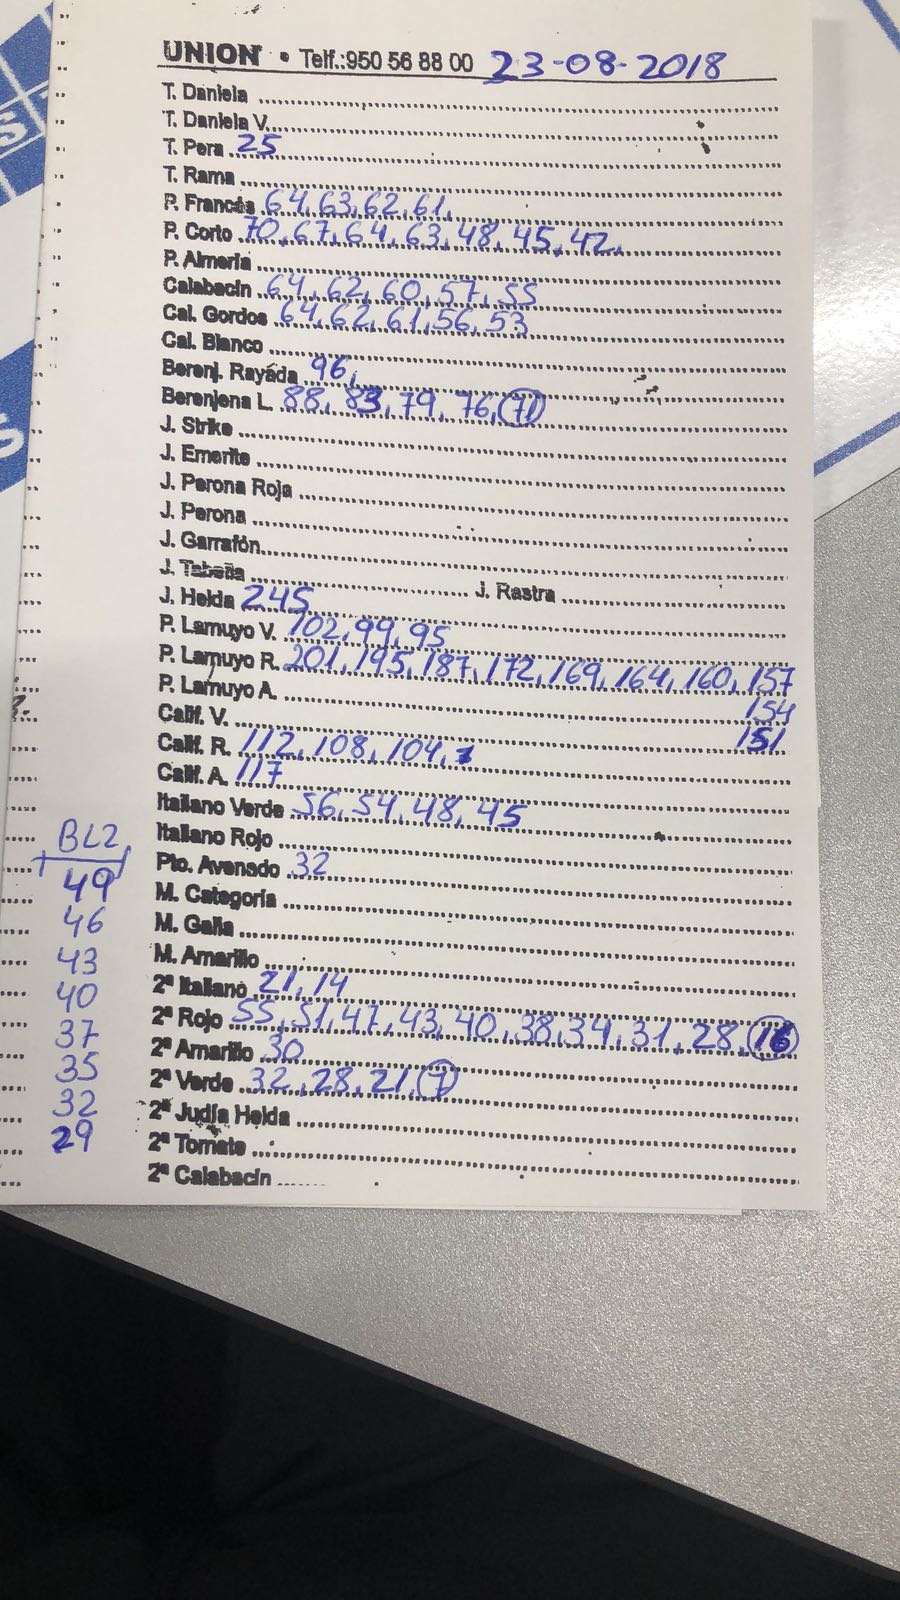 UNION • Telf.:950 56 88 00 23-08-2018
T. Daniela
T. Daniela V.
T. Pera 25
T. Rama
P. Francés 64, 63, 62, 61,
P. Corto 70, 67, 64, 63, 48, 45, 42,
P. Almería
Calabacín 64, 62, 60, 57, 55
Cal. Gordos 64, 62, 61, 56, 53
Cal. Blanco
Berenj. Rayada 96,
Berenjena L. 88, 83, 79, 76, (71)
J. Strike
J. Emerite
J. Perona Roja
J. Perona
J. Garrafón
J. Tabella J. Rastra
J. Helda 245
P. Lamuyo V. 102, 99, 95
P. Lamuyo R. 201, 195, 187, 172, 169, 164, 160, 157
P. Lamuyo A. 154
Calif. V. 151
Calif. R. 112, 108, 104,
Calif. A. 117
Italiano Verde 56, 54, 48, 45
Italiano Rojo
Pto. Avenado 32
M. Categoría
M. Galia
M. Amarillo
2ª Italiano 21, 14
2ª Rojo 55, 51, 47, 43, 40, 38, 34, 31, 28, (16)
2ª Amarillo 30
2ª Verde 32, 28, 21, (7)
2ª Judía Helda
2ª Tomate
2ª Calabacín
BL2
49
46
43
40
37
35
32
29